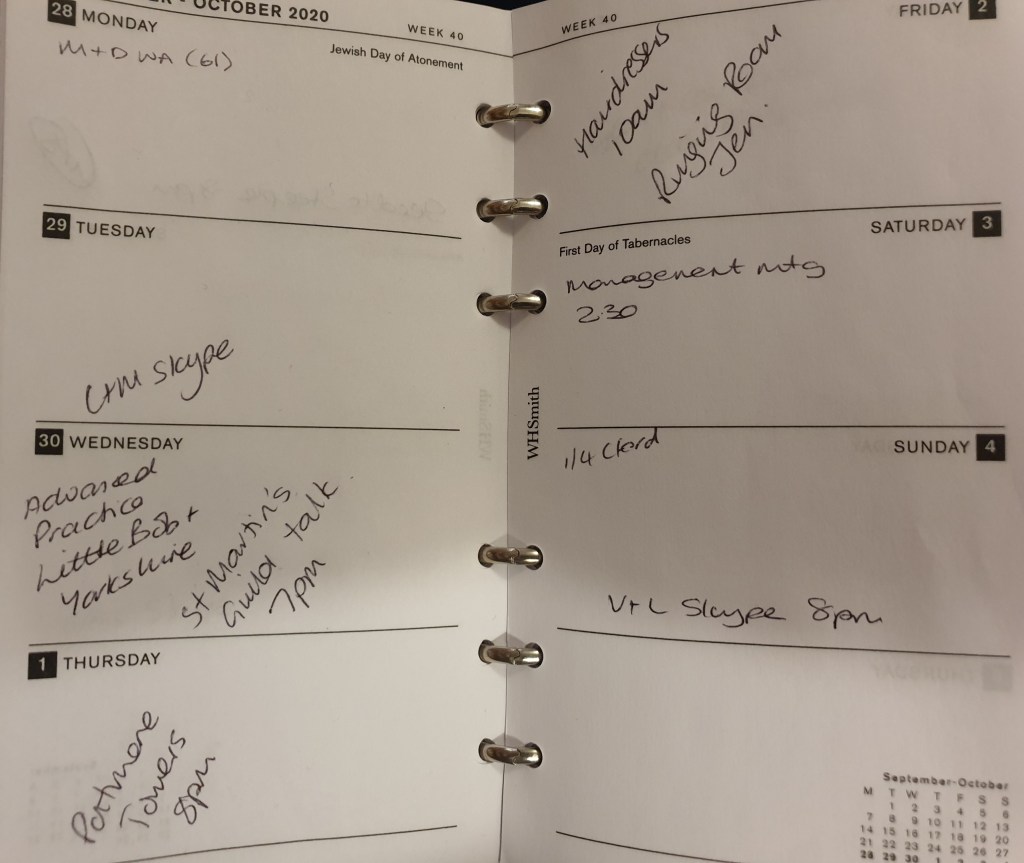 - OCTOBER 2020
WEEK 40
28 MONDAY
Jewish Day of Atonement
M+D WA (61)
29 TUESDAY
C+M Skype
30 WEDNESDAY
Advanced
Practice
Little Bob +
Yorkshire
St Martin's
Guild talk
7pm
1 THURSDAY
Towers
8pm
WEEK 40
FRIDAY 2
Hairdressers
10am
Ringing Room
Jen.
SATURDAY 3
First Day of Tabernacles
Management mtg
2.30
WHSmith
SUNDAY 4
1/4
V+L Skype 8pm
September-October
M T W T F S S
1 2 3 4 5 6
7 8 9 10 11 12 13
14 15 16 17 18 19 20
21 22 23 24 25 26 27
28 29 30